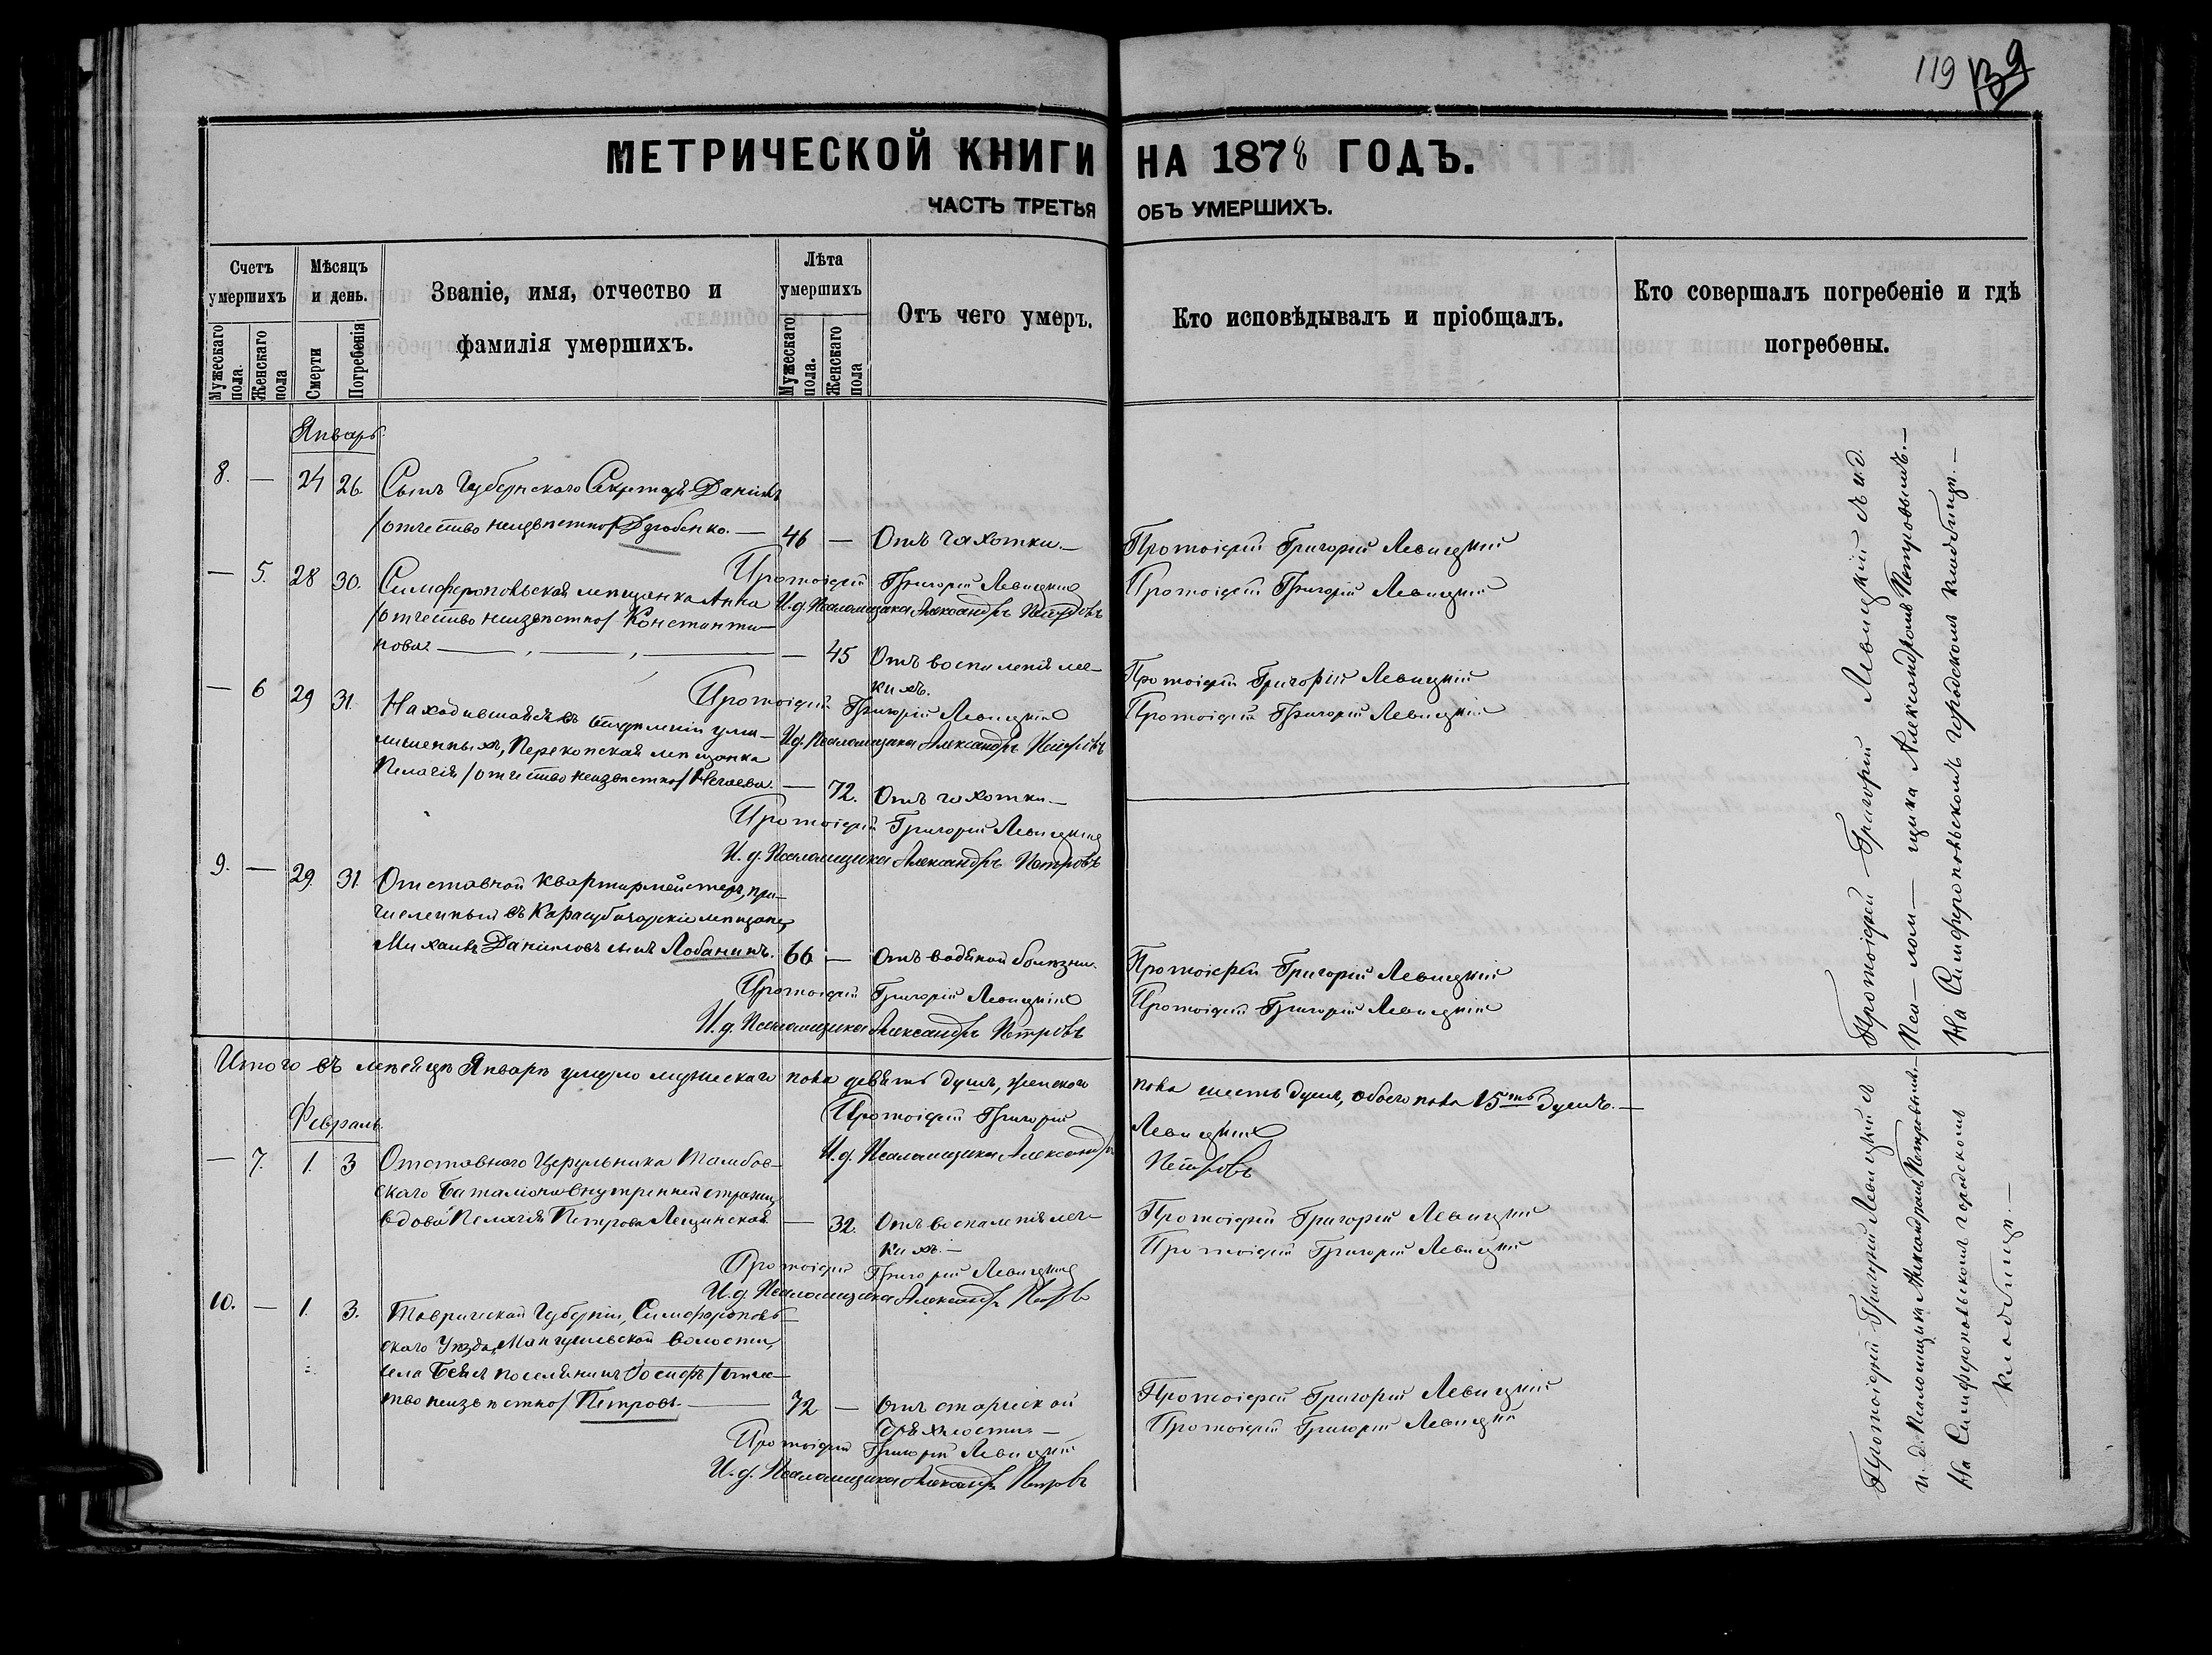 119 139
МЕТРИЧЕСКОЙ КНИГИ НА 1878 ГОДЪ.
ЧАСТЬ ТРЕТЬЯ ОБЪ УМЕРШИХЪ.
Счетъ умершихъ
Мужескаго пола.
Женскаго пола
Мѣсяцъ и день.
Смерти
Погребенія
Званіе, имя, отчество и
фамилія умершихъ.
Лѣта умершихъ
Мужескаго пола.
Женскаго пола
Отъ чего умеръ.
Кто исповѣдывалъ и пріобщалъ.
Кто совершалъ погребеніе и гдѣ
погребены.
Январь
8. — 24 26. Сынъ Губернскаго Секретаря Даніилъ
/отчество неизвѣстно/ Дзюбенко. — 46 — Отъ чахотки. — Протоіерей Григорій Левицкій
Протоіерей Григорій Левицкій Протоіерей Григорій Левицкій
И. д. Псаломщика Александръ Петровъ
— 5. 28 30. Симферопольская мѣщанка Анна
/отчество неизвѣстно/ Константи-
нова — — 45 Отъ воспаленія лег-
кихъ. Протоіерей Григорій Левицкій
Протоіерей Григорій Левицкій Протоіерей Григорій Левицкій
И. д. Псаломщика Александръ Петровъ
— 6 29 31. Находившаяся въ отдѣленіи ума-
лишенныхъ, Перекопская мѣщанка
Пелагія /отчество неизвѣстно/ Нечаева. — 72. Отъ чахотки. —
Протоіерей Григорій Левицкій
И. д. Псаломщика Александръ Петровъ
9. — 29. 31. Отставной квартирмейстеръ, при-
численный въ Карасубазарскіе мѣщане,
Михаилъ Даніиловъ сынъ Лобанинъ. 66 — Отъ водяной болѣзни. Протоіерей Григорій Левицкій
Протоіерей Григорій Левицкій Протоіерей Григорій Левицкій
И. д. Псаломщика Александръ Петровъ
Протоіерей Григорій Левицкій съ и. д.
Пса — лом — щика Александромъ Петровымъ. —
На Симферопольскомъ городскомъ кладбищѣ. —
Итого въ мѣсяцѣ Январѣ умерло мужескаго пола девять душъ, женскаго пола шесть душъ, обоего пола 15ть душъ. —
Протоіерей Григорій Левицкій
И. д. Псаломщика Александръ Петровъ
Февраль.
— 7. 1. 3 Отставнаго Цирульника Тамбов-
скаго Баталіона внутренней стражи
вдова Пелагія Петрова Лещинская. — 32. Отъ воспаленія лег-
кихъ. — Протоіерей Григорій Левицкій
Протоіерей Григорій Левицкій Протоіерей Григорій Левицкій
И. д. Псаломщика Александръ Петровъ
10. — 1. 3. Таврической Губерніи, Симферополь-
скаго Уѣзда, Мангушской волости,
села поселянинъ Іосифъ /отчес-
тво неизвѣстно/ Петровъ. — 72 — Отъ старческой
дряхлости — Протоіерей Григорій Левицкій
Протоіерей Григорій Левицкій Протоіерей Григорій Левицкій
И. д. Псаломщика Александръ Петровъ
Протоіерей Григорій Левицкій съ
и. д. Псаломщика Александромъ Петровымъ. —
На Симферопольскомъ городскомъ
кладбищѣ. —